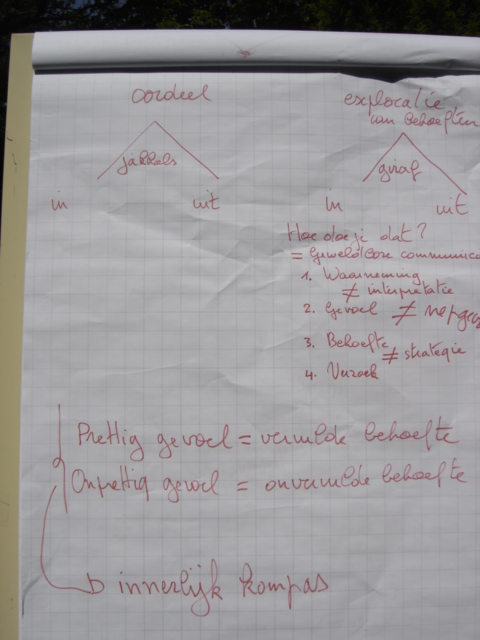 oordeel
jakhals
in uit
exploratie
van behoeften
giraf
in uit
Hoe doe je dat?
= Geweldloze communica
1. Waarneming
≠ interpretatie
2. Gevoel ≠ nepgev
3. Behoefte
≠ strategie
4. Verzoek
Prettig gevoel = vervulde behoefte
Onprettig gevoel = onvervulde behoefte
innerlijk kompas